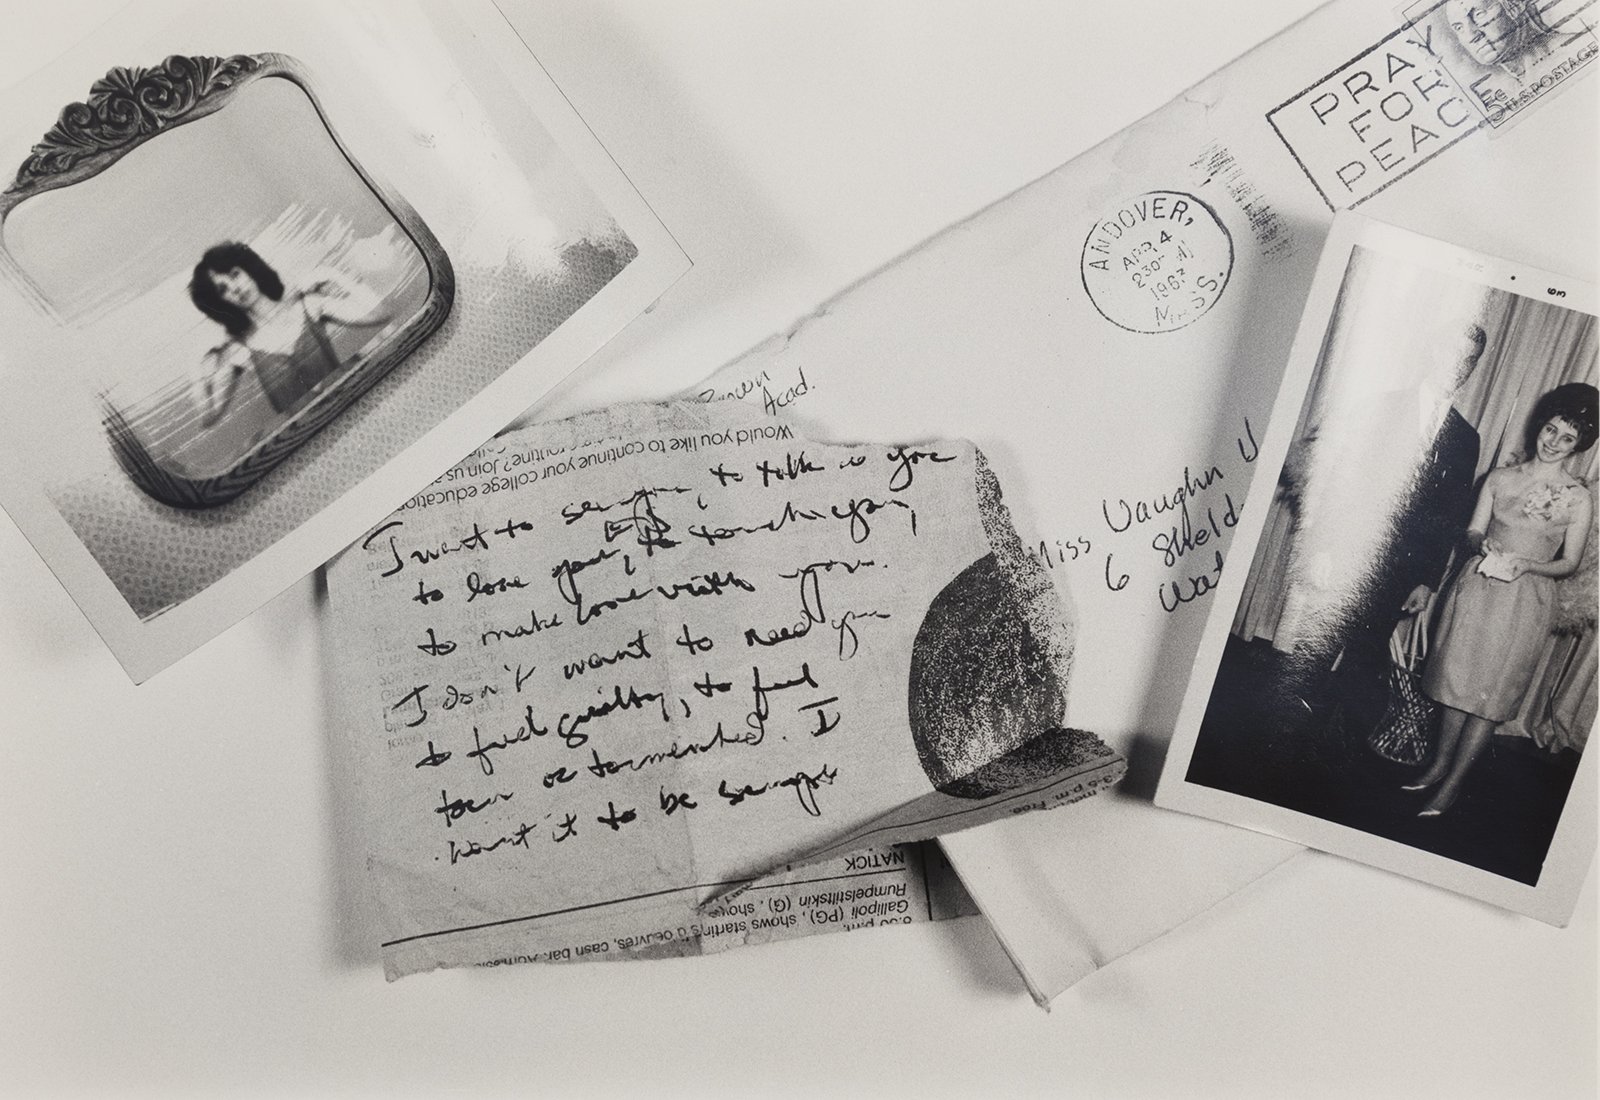 PRAY
FOR
PEACE
5¢ U.S. POSTAGE
ANDOVER,
APR 4
230 PM
1963
MASS.
63
Acad.
Would you like to continue your
college education
routine? Join us
I want to see you, to talk to you
to love you, to touch you,
to make love with you.
I don't want to need you
to feel guilty, to feel
torn or tormented. I
want it to be simple
Miss Vaughn
6 Sheld
Wat
3-5 p.m. Free.
NATICK
Rumpelstiltskin (G), shows
Gallipoli (PG), shows starting
8:30 p.m.
d'oeuvres, cash bar.